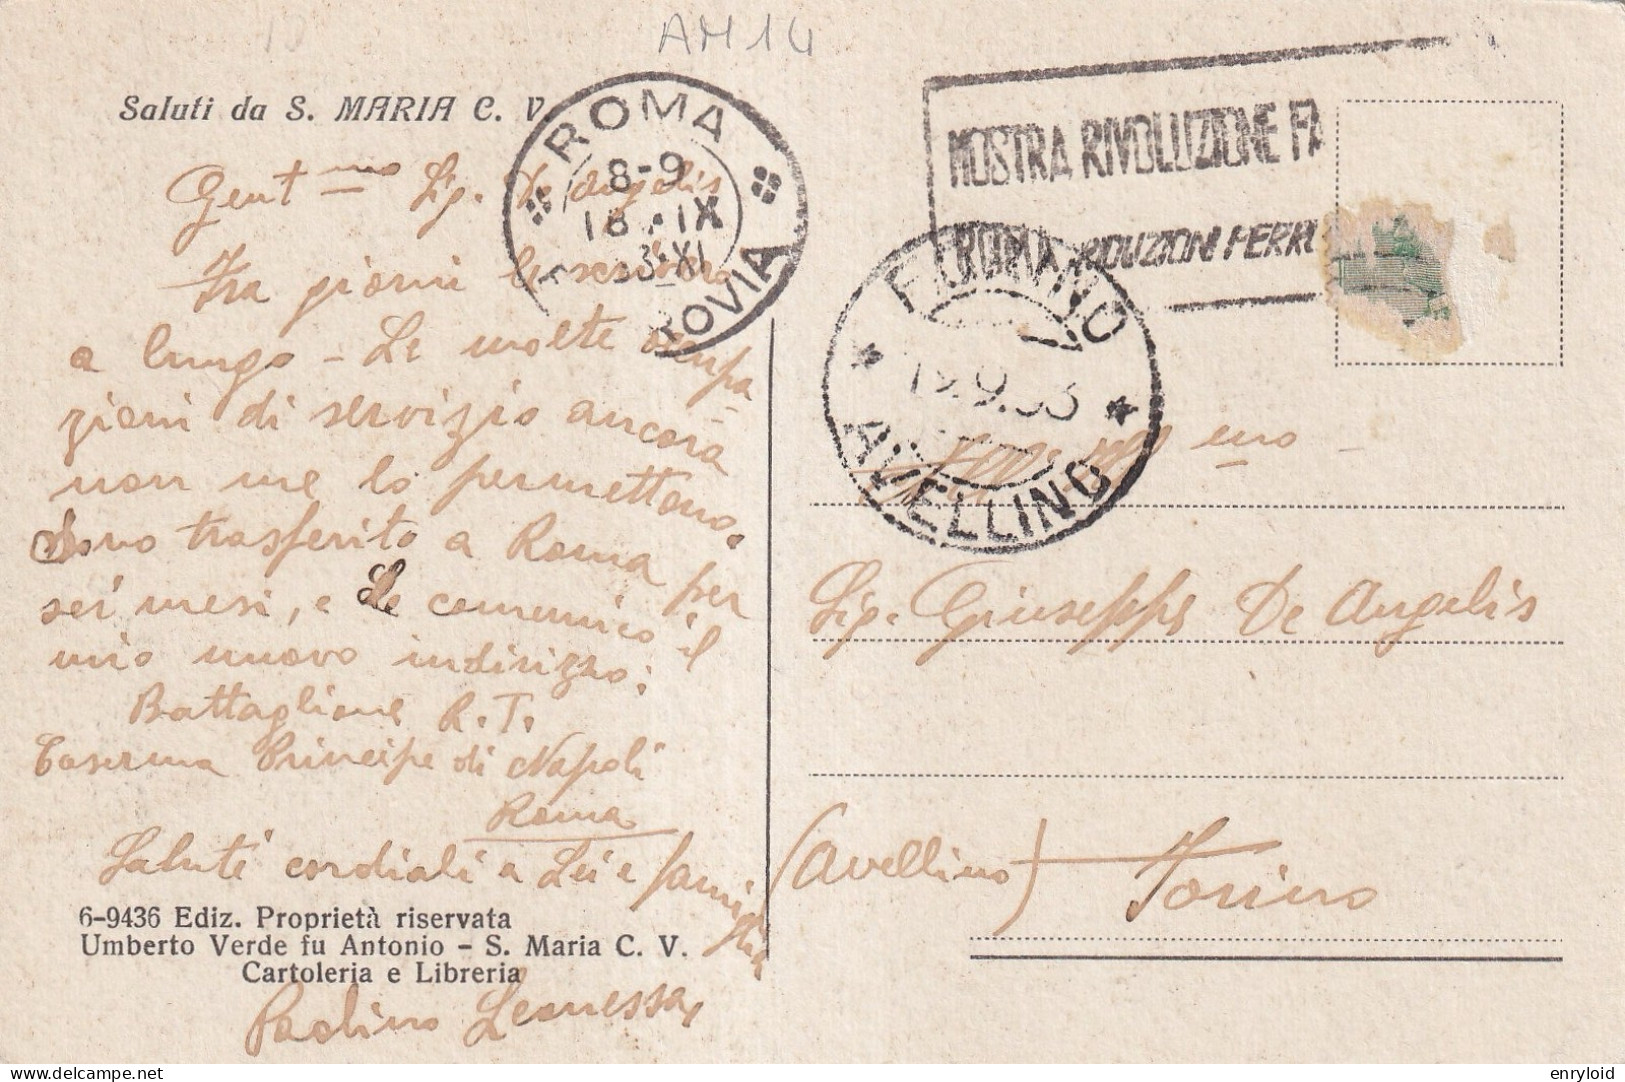 AM 14
Saluti da S. MARIA C. V.
Gent mo Sig. De Angelis
Fra giorni le scriverò
a lungo - Le molte occupa-
zioni di servizio ancora
non me lo permettono.
Sono trasferito a Roma per
sei mesi, e Le comunico il
mio nuovo indirizzo:
Battaglione R.T.
Caserma Principe di Napoli
Roma
Saluti cordiali a Lei e famiglia
6-9436 Ediz. Proprietà riservata
Umberto Verde fu Antonio - S. Maria C. V.
Cartoleria e Libreria
Paolino
ROMA
8-9
18 · IX
33·XI
OVIA
MOSTRA RIVOLUZIONE FA
ROMA RIDUZIONI FERR
FORINO
19.9.33
AVELLINO
mo
Sig. Giuseppe De Angelis
(Avellino) Forino
delcampe.net
enryloid